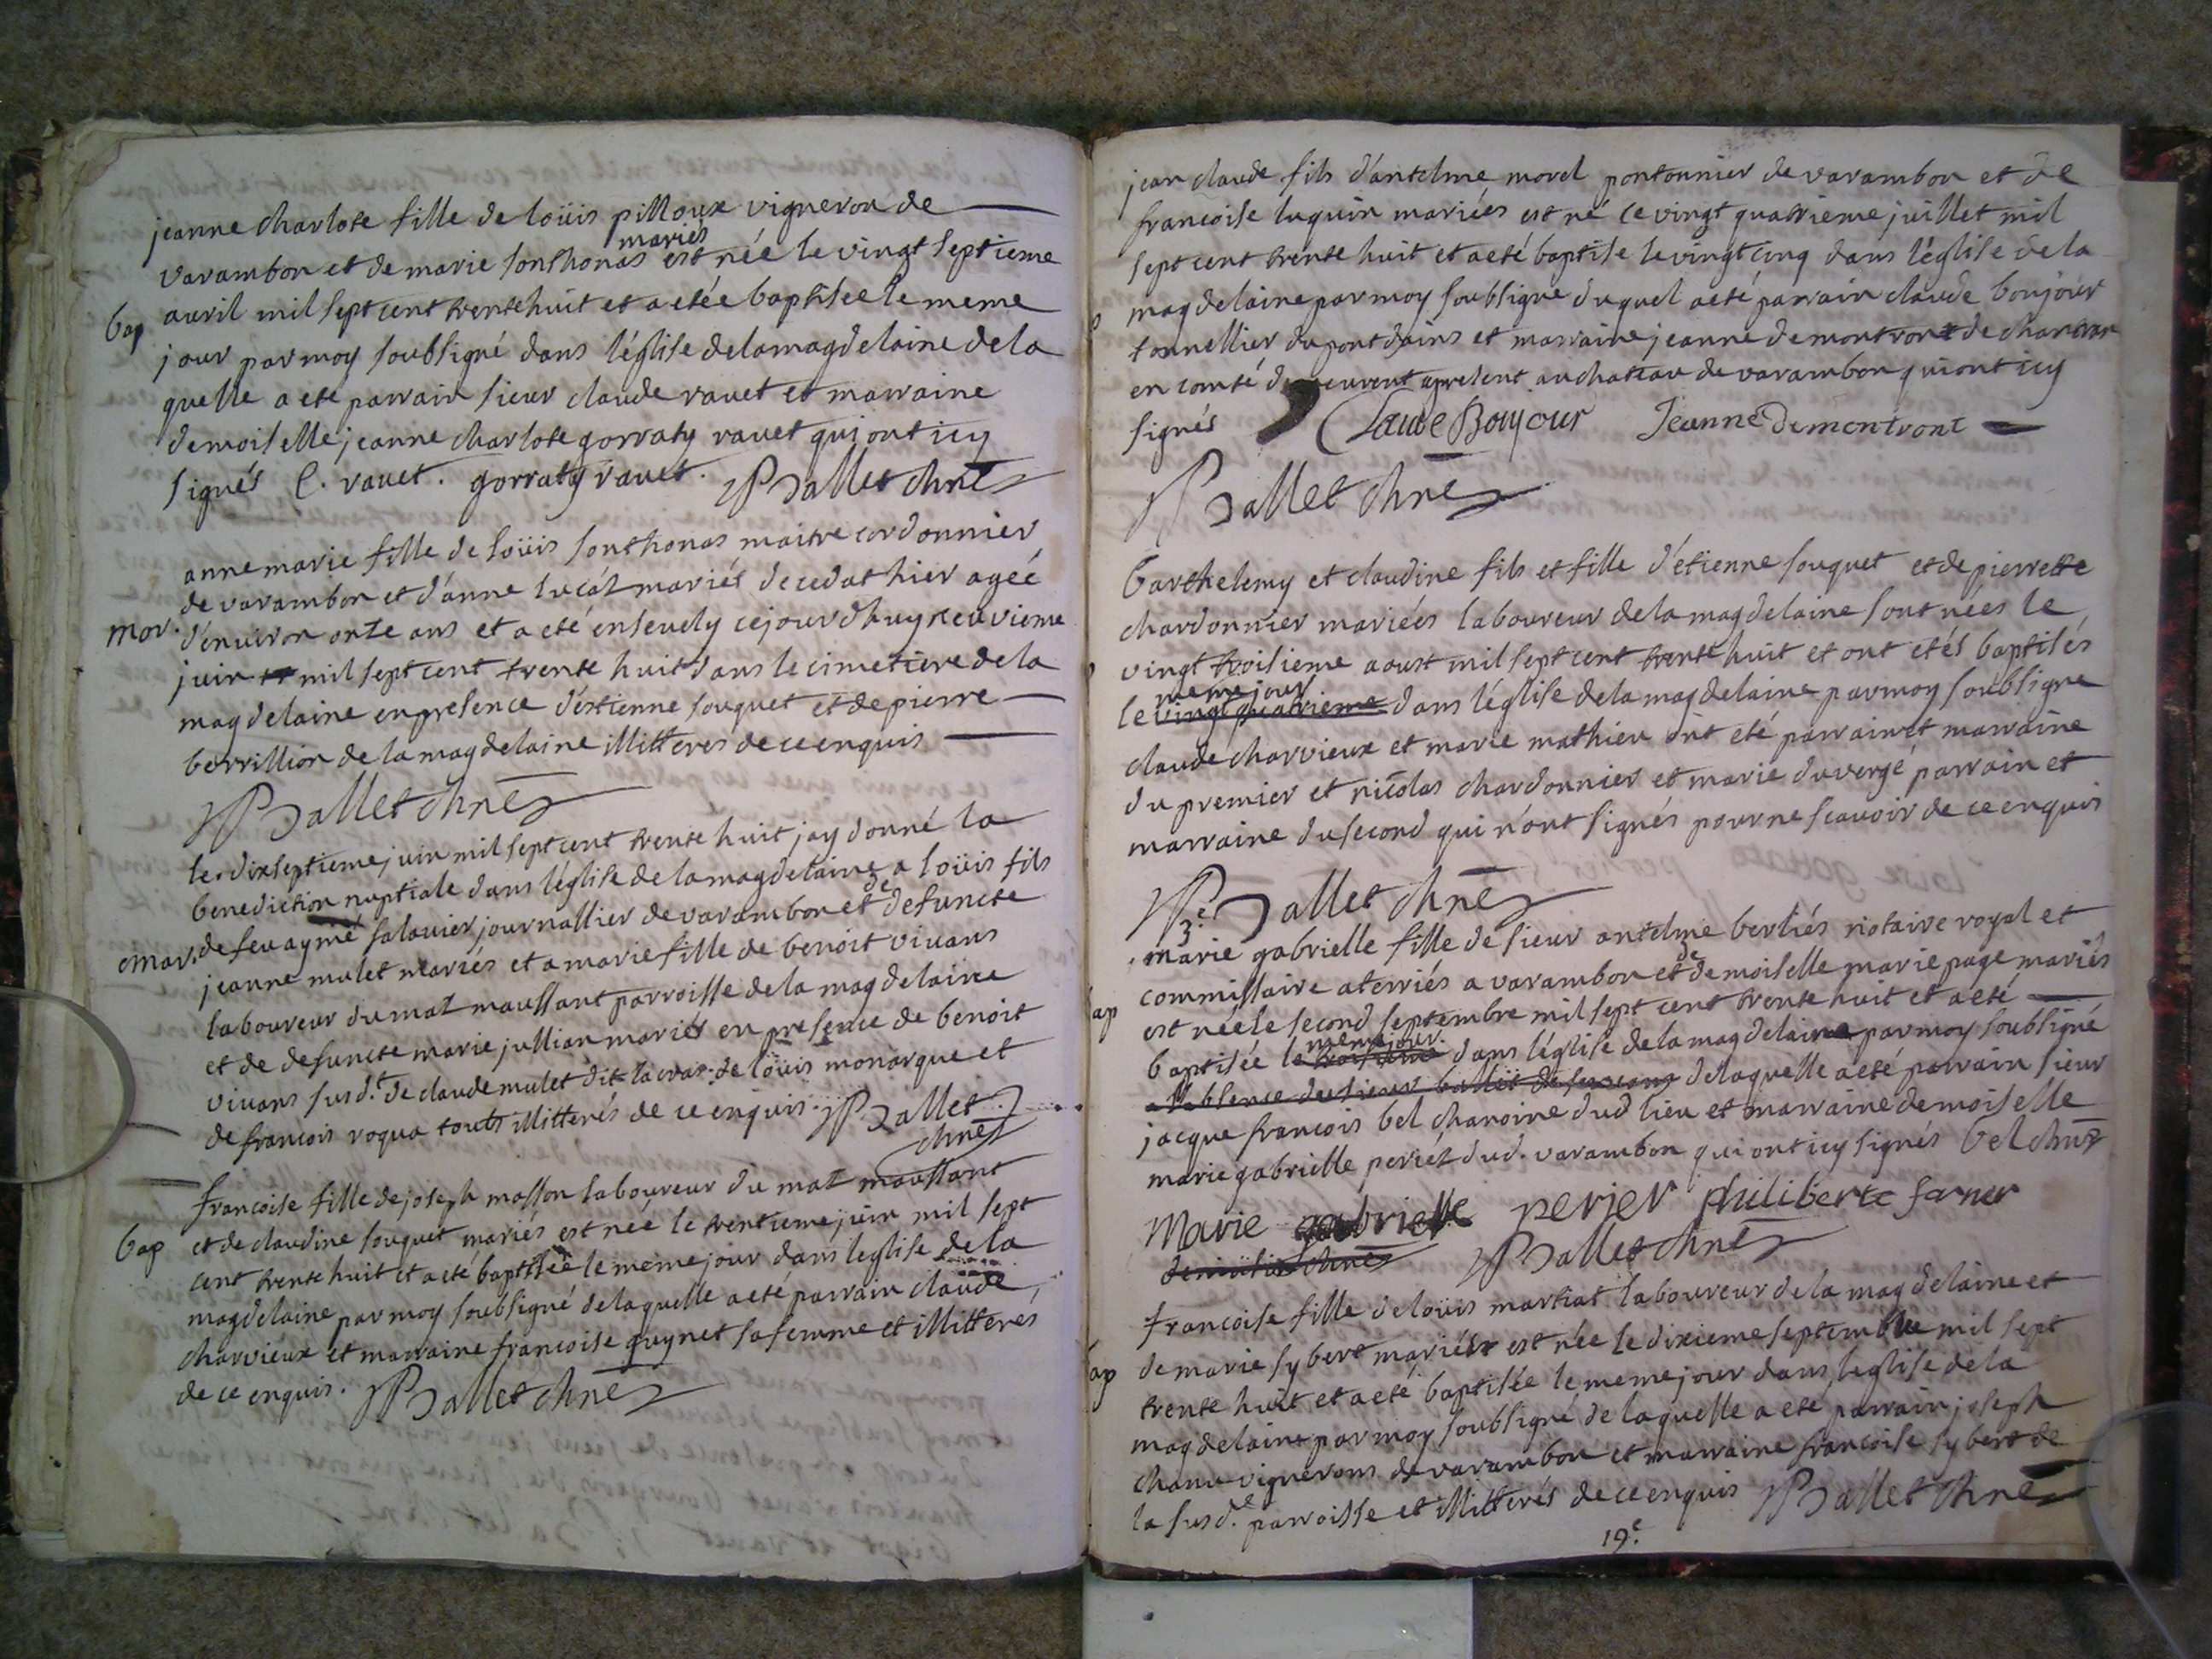 jeanne charlote fille de loüis pilloux vigneron de
mariés
varambon et de marie sonthonas est née le vingt septieme
bap avril mil sept cent trente huit et a etée baptisee le meme
jour par moy soubsigné dans l'églisse delamagdelaine dela
quelle a eté parrain sieur claude ravet et marraine
demoiselle jeanne charlote gorraty ravet qui ont icy
signés C. ravet. gorraty ravet. Ballet chne
anne marie fille de loüis sonthonas maitre cordonnier
de varambon et d'anne lucát mariés decedat hier ageé
mor. d'environ onze ans et a eté ensevely cejourdhuy neuvieme
juin mil sept cent trente huit dans le cimetiere dela
magdelaine en presence d'estienne souquet et de pierre
berrillion de la magdelaine illitteres de ce enquis
Ballet chne
le dixseptieme juin mil sept cent trente huit jay donné la
benediction nuptiale dans léglise de la magdelaine a loüis fils
mar. de feu aymé salavier journallier de varambon et de defuncte
jeanne mulet mariés et a marie fille de benoit vivans
laboureur du maz maussant parroisse dela magdelaine
et de defuncte marie jullian mariés en presence de benoit
vivans susd.t de claude mulet dit lacras de loüis monarque et
de francois roqua touts illitterés de ce enquis. Ballet
chne
francoise fille de joseph masson laboureur du maz maussant
bap et de claudine souquet mariés est née le trentieme juin mil sept
cent trente huit et a eté baptiseè le meme jour dans leglise dela
magdelaine par moy soubsigné delaquelle a eté parrain claude
charvieux et marraine francoise guynet sa femme et illitterés
de ce enquis. Ballet chne
jean claude fils d'antelme morel pontonnier de varambon et de
francoise luquin mariées est né le vingt quatrieme juillet mil
sept cent trente huit et a eté baptise le vingt cinq dans léglise dela
magdelaine par moy soubsigne duquel a eté parrain claude boujour
tonnellier du pont dains et marraine jeanne demontront de
en comté demeurent apresent au chateau de varambon qui ont icy
signés Claude Boujour Jeanne Demontront
Ballet chne
barthelemy et claudine fils et fille d'étienne souquet et de pierrette
chardonnier mariées laboureur dela magdelaine sont nées le
vingt troisieme aoust mil sept cent trente huit et ont etés baptisés
meme jour
le vingt quatrieme dans l'église dela magdelaine par moy soubsigne
claude charvieux et marie mathieu ont eté parrain et marraine
du premier et nicolas chardonnier et marie duvergé parrain et
marraine du second qui n'ont signés pour ne scavoir de ce enquis
Ballet chne
3.e
marie gabrielle fille de sieur antelme berliés notaire royal et
commissaire aterriés a varambon et de demoiselle marie page mariés
bap est née le second septembre mil sept cent trente huit et a eté
meme jour
baptisée le troisieme dans léglise dela magdelaine par moy soubsigné
delaquelle a eté parrain sieur
jacque francois bel chanoine dud lieu et marraine demoiselle
marie gabrielle periéz dud. varambon qui ont icy signés bel chne
marie gabrielle perier philiberte
Ballet chne
francoise fille deloüis martiat laboureur dela magdelaine et
bap de marie sybert mariés est née le dixieme septembre mil sept
trente huit et a eté baptisée le meme jour dans leglise dela
magdelaine par moy soubsigné de laquelle a eté parrain joseph
chanu vignerons de varambon et marraine francoise sybert de
la susd.e parroisse et illitterés de ce enquis Ballet chne
19.e